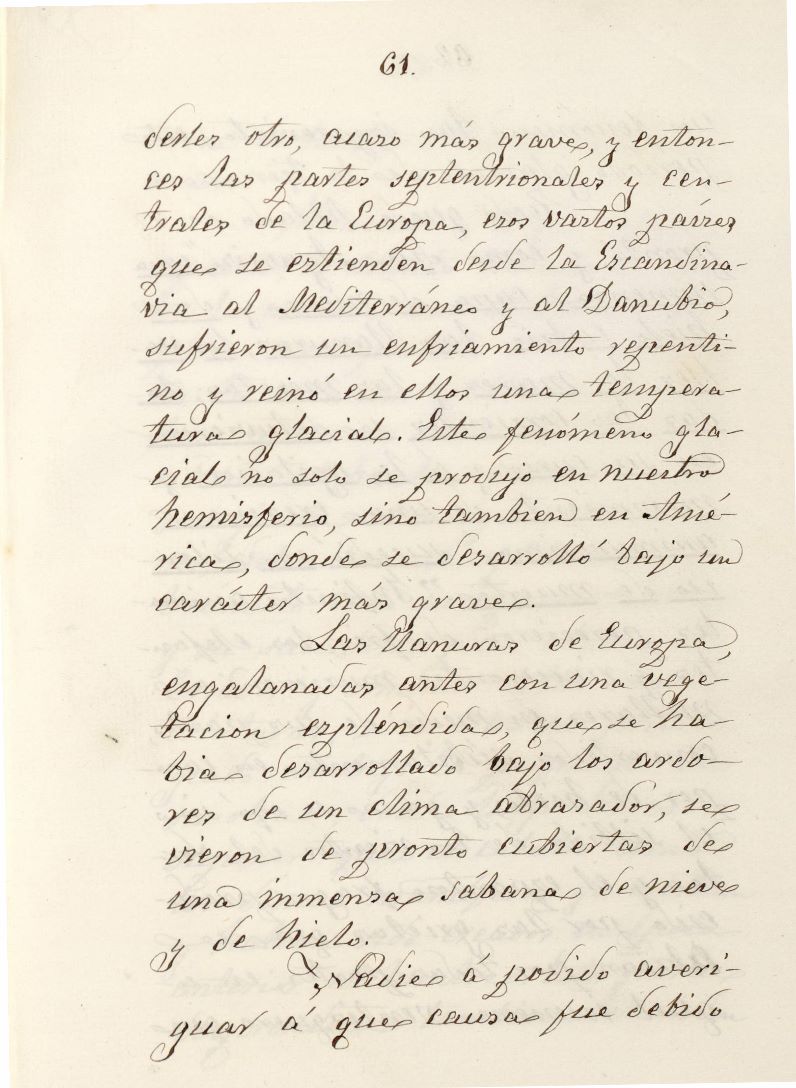 61.
derles otro, acaso más grave, y enton-
ces las partes septentrionales y cen-
trales de la Europa, esos vastos paises
que se estienden desde la Escandina-
via al Mediterráneo y al Danubio,
sufrieron un enfriamiento repenti-
no y reinó en ellos una tempera-
tura glacial. Este fenómeno gla-
cial no solo se produjo en nuestro
hemisferio, sino tambien en Amé-
rica, donde se desarrolló bajo un
carácter más grave.
Las llanuras de Europa,
engalanadas antes con una vege-
tacion espléndida, que se ha-
bia desarrollado bajo los ardo-
res de un clima abrasador, se
vieron de pronto cubiertas de
una inmensa sábana de nieve
y de hielo.
Nadie á podido averi-
guar á que causa fue debido